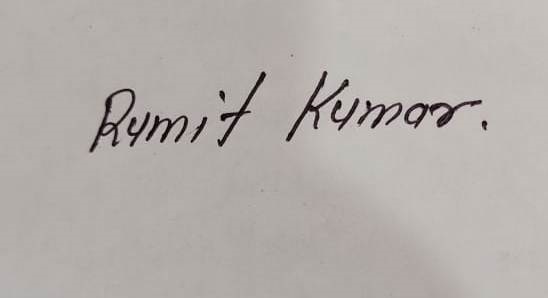 Rumit Kumar.